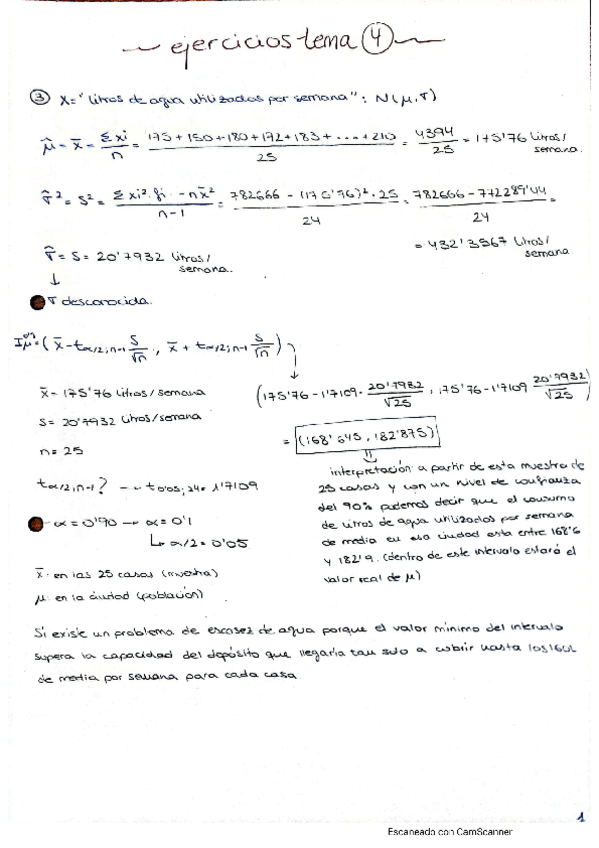 ejercicios tema 4
③ X = "litros de agua utilizados por semana" : N(μ, σ)
μ̂ = x̄ = Σxi / n = 175 + 150 + 180 + 172 + 183 + .... + 210 / 25 = 4394 / 25 = 175'76 litros / semana.
σ̂² = s² = Σxi²·fi - n x̄² / n-1 = 782666 - (175'76)² · 25 / 24 = 782666 - 772289'44 / 24 =
= 432'3567 litros / semana
σ̂ = s = 20'7932 litros / semana.
↓
σ desconocida.
I μ = (x̄ - tα/2; n-1 s/√n , x̄ + tα/2; n-1 s/√n)
x̄ = 175'76 litros / semana
(175'76 - 1'7109 · 20'7932/√25 , 175'76 - 1'7109 20'7932/√25)
s = 20'7932 litros / semana
= (168'645, 182'875)
n = 25
tα/2; n-1? → t0'05; 24 = 1'7109
- α = 0'90 → α = 0'1
↳ α/2 = 0'05
interpretación: a partir de esta muestra de
25 casas y con un nivel de confianza
del 90% podemos decir que el consumo
de litros de agua utilizados por semana
de media en esa ciudad esta entre 168'6
y 182'9. (dentro de este intervalo estará el
valor real de μ)
x̄: en las 25 casas (muestra)
μ: en la ciudad (población)
Sí existe un problema de escasez de agua porque el valor mínimo del intervalo
supera la capacidad del depósito que llegaría tan solo a cubrir hasta los
de media por semana para cada casa
1
Escaneado con CamScanner